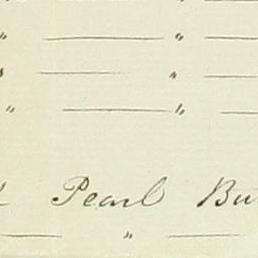 " "
" "
" "
Pearl Bu
"